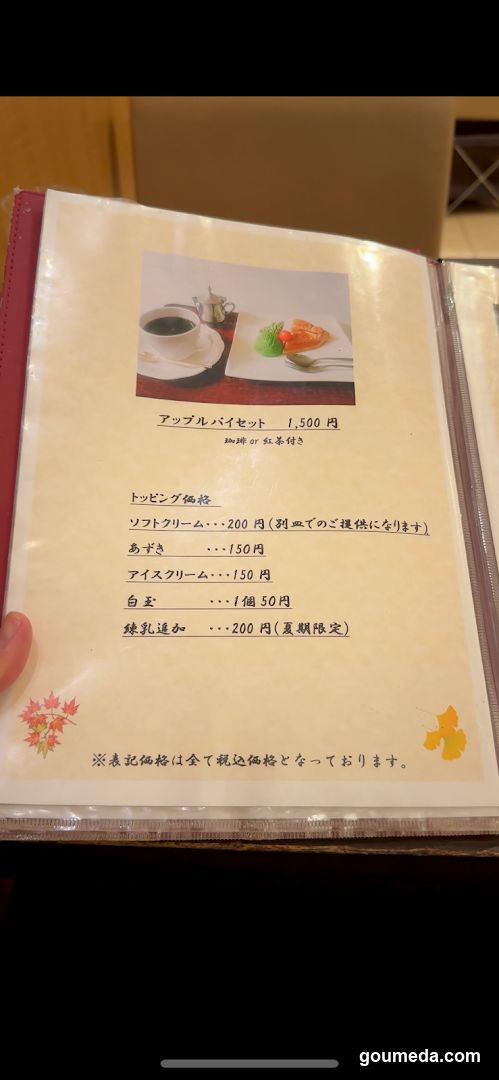 アップルパイセット 1,500 円
珈琲 or 紅茶付き
トッピング価格
ソフトクリーム・・・200 円(別皿でのご提供になります)
あずき ・・・150円
アイスクリーム・・・150 円
白玉 ・・・1個 50円
練乳追加 ・・・200 円(夏期限定)
※表記価格は全て税込価格となっております。
goumeda.com